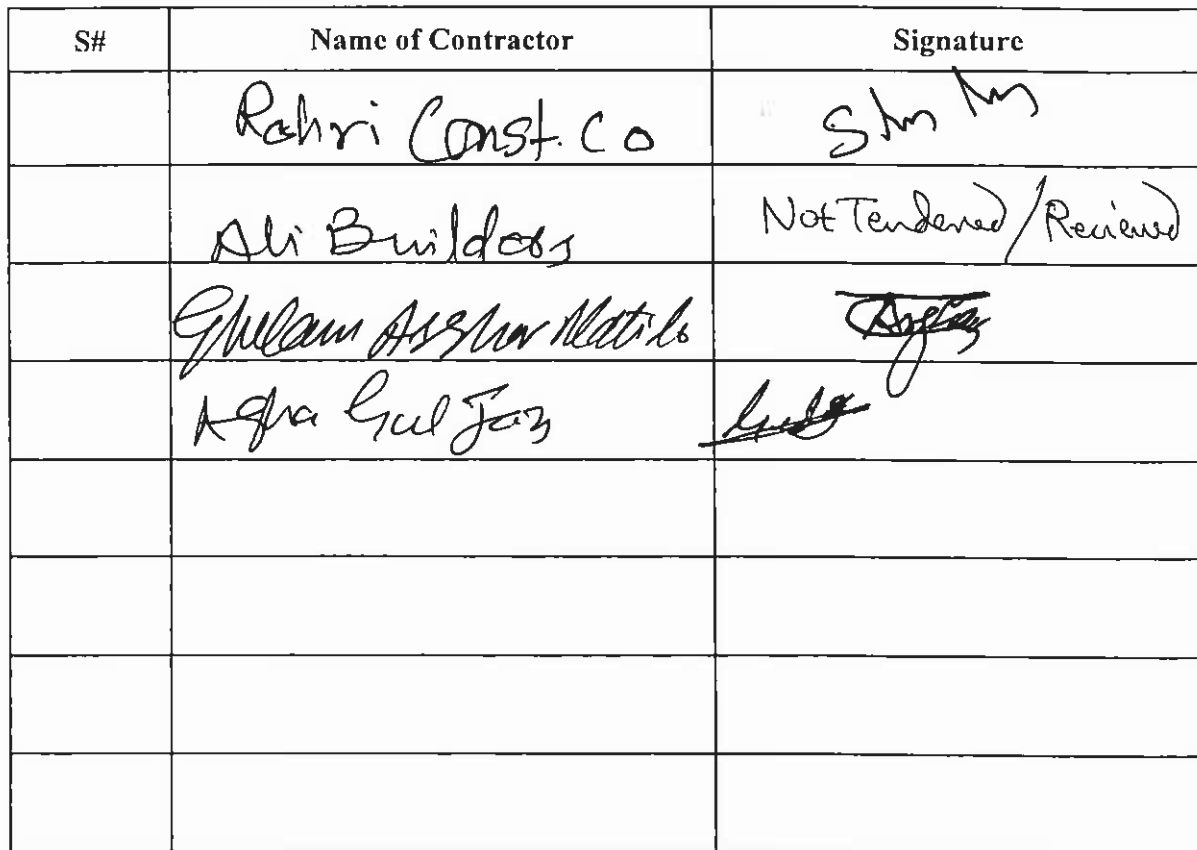 S# Name of Contractor Signature
Rahri Const. Co
Ali Builders Not Tendered/Recieved
Ghulam Asghar
Agha Gul